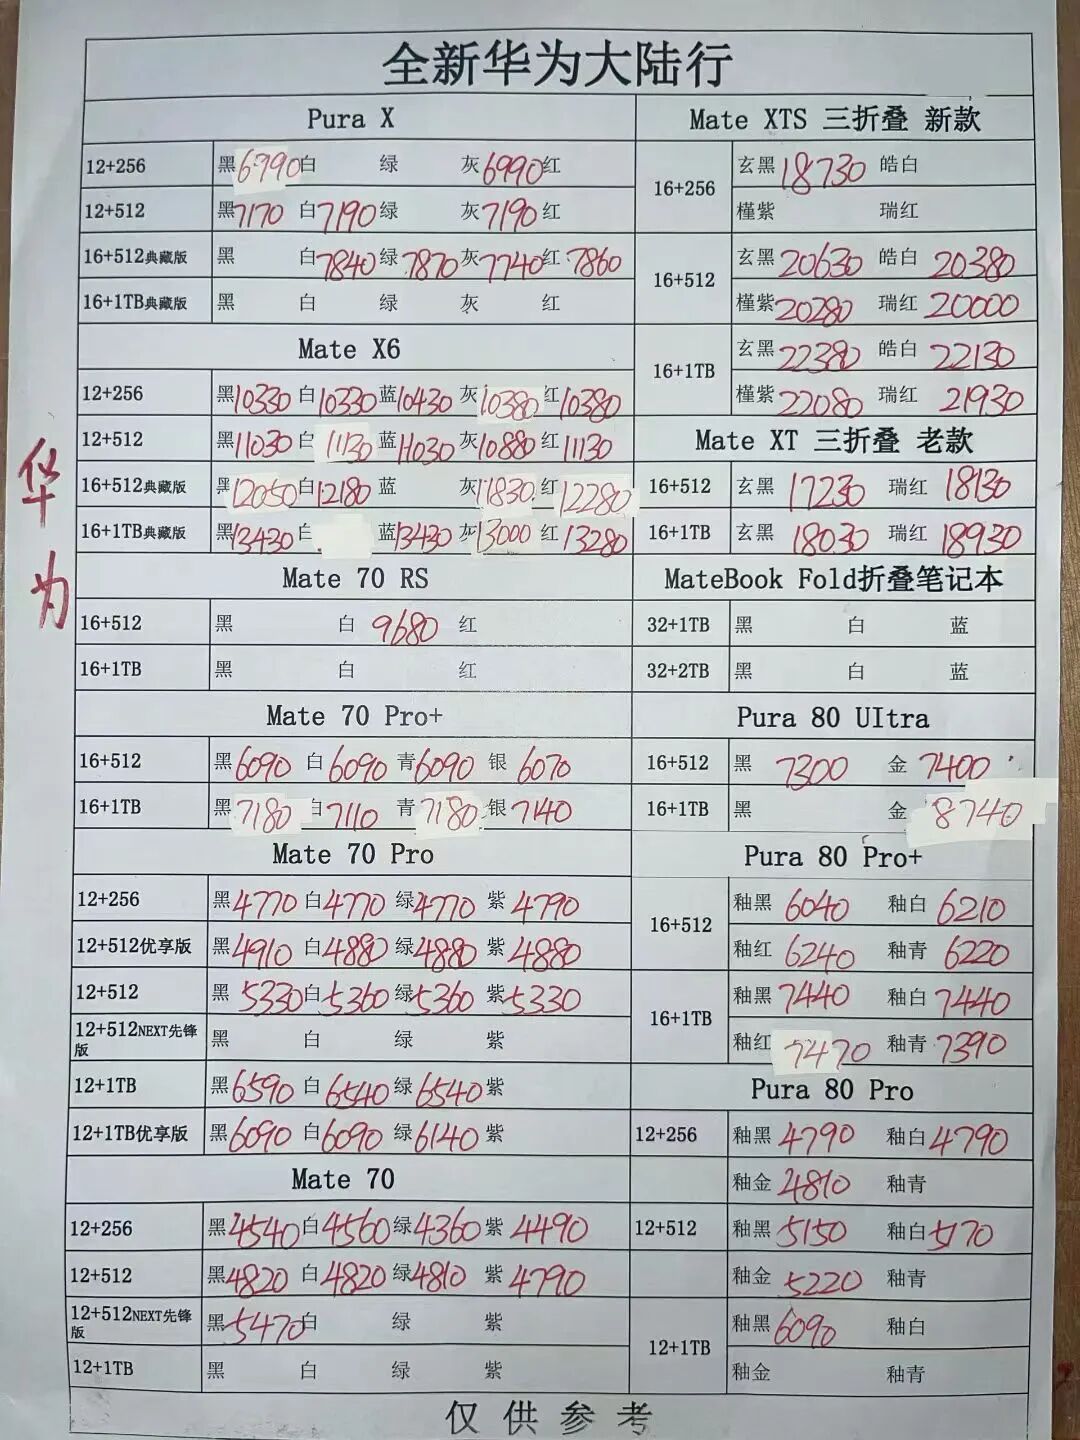 全新华为大陆行
Pura X
12+256 黑6990白 绿 灰6990红
12+512 黑7170 白7190绿 灰7190红
16+512典藏版 黑 白7840绿7870灰7740红7860
16+1TB典藏版 黑 白 绿 灰 红
Mate X6
12+256 黑10330白10330蓝10430灰10380红10380
12+512 黑11030白11130蓝11030灰10880红11130
16+512典藏版 黑12050白12180蓝 灰11830红12280
16+1TB典藏版 黑13430白 蓝13430灰13000红13280
Mate 70 RS
16+512 黑 白9680红
16+1TB 黑 白 红
Mate 70 Pro+
16+512 黑6090白6090青6090银6070
16+1TB 黑7180白7110青7180银7140
Mate 70 Pro
12+256 黑4770白4770绿4770紫4790
12+512优享版 黑4910白4880绿4880紫4880
12+512 黑5330白5360绿5360紫5330
12+512NEXT先锋版 黑 白 绿 紫
12+1TB 黑6590白6540绿6540紫
12+1TB优享版 黑6090白6090绿6140紫
Mate 70
12+256 黑4540白4560绿4360紫4490
12+512 黑4820白4820绿4810紫4790
12+512NEXT先锋版 黑5470白 绿 紫
12+1TB 黑 白 绿 紫
Mate XTS 三折叠 新款
16+256 玄黑18730皓白
槿紫 瑞红
16+512 玄黑20630皓白20380
槿紫20280瑞红20000
16+1TB 玄黑22380皓白22130
槿紫22080瑞红21930
Mate XT 三折叠 老款
16+512 玄黑17230瑞红18130
16+1TB 玄黑18030瑞红18930
MateBook Fold折叠笔记本
32+1TB 黑 白 蓝
32+2TB 黑 白 蓝
Pura 80 UItra
16+512 黑7300金7400
16+1TB 黑 金8740
Pura 80 Pro+
16+512 釉黑6040釉白6210
釉红6240釉青6220
16+1TB 釉黑7440釉白7440
釉红7470釉青7390
Pura 80 Pro
12+256 釉黑4790釉白4790
釉金4810釉青
12+512 釉黑5150釉白5170
釉金5220釉青
12+1TB 釉黑6090釉白
釉金 釉青
仅供参考
华为